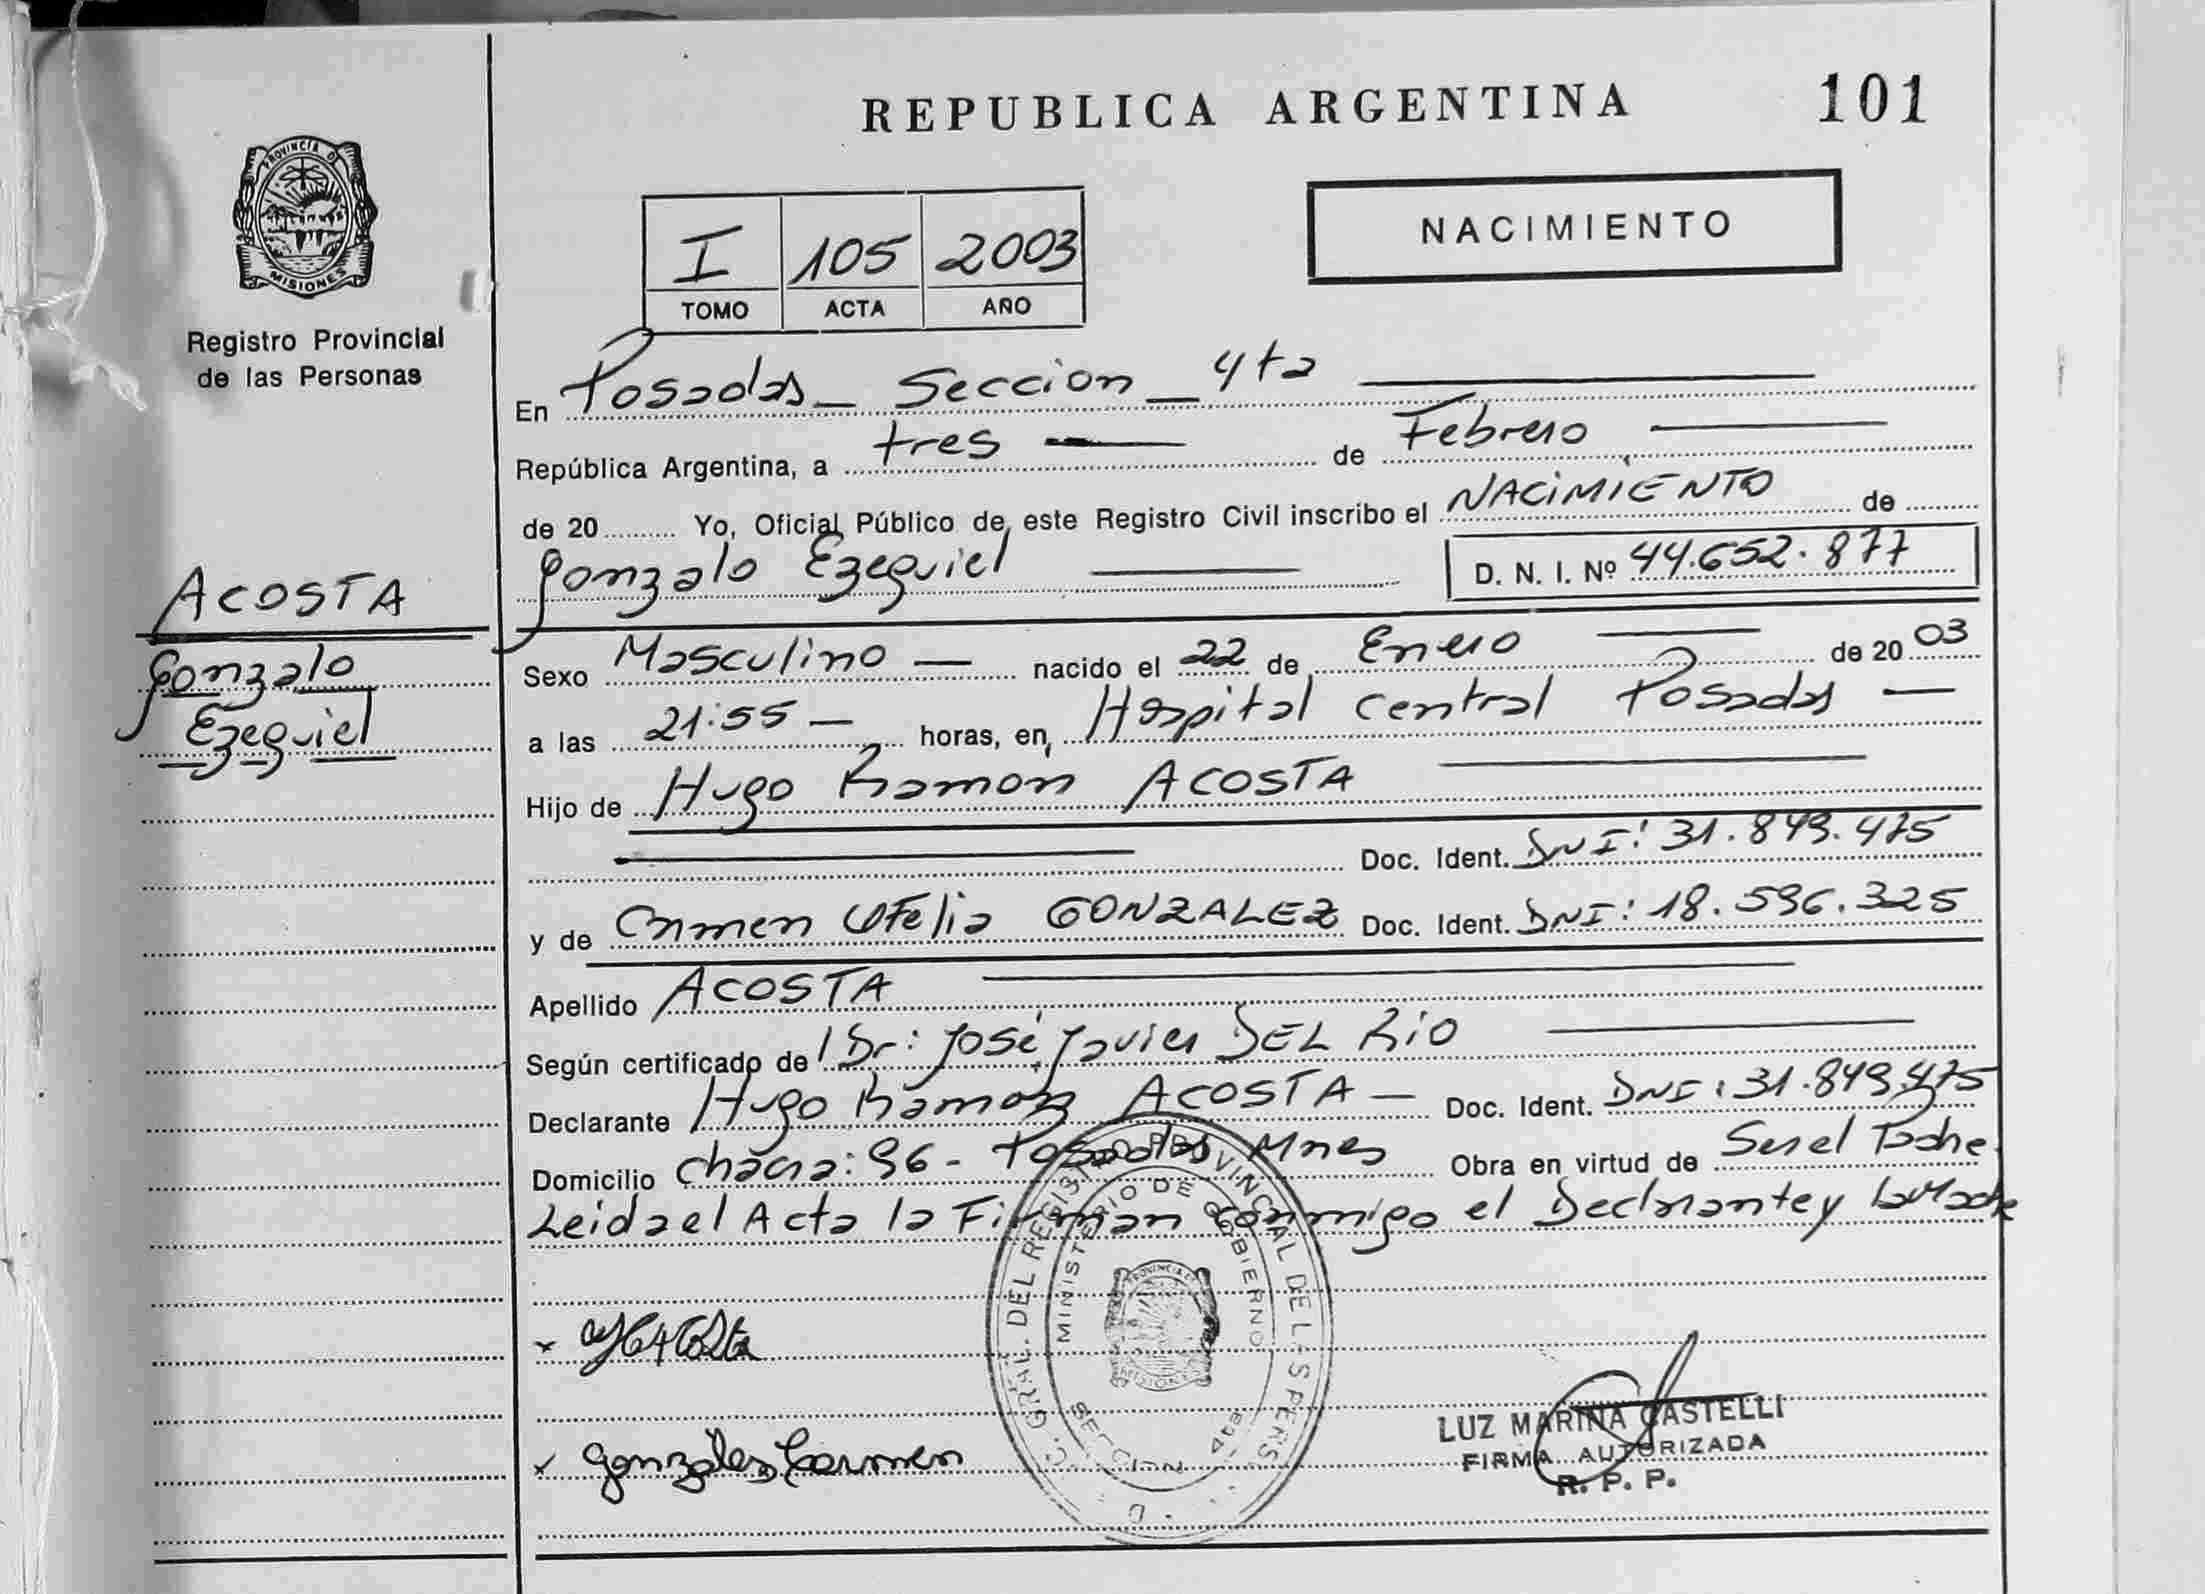 REPUBLICA ARGENTINA
101
PROVINCIA DE
MISIONES
Registro Provincial
de las Personas
I 105 2003
TOMO ACTA AÑO
NACIMIENTO
En Posadas - Seccion - 4ta
República Argentina, a tres de Febrero
de 20 Yo, Oficial Público de este Registro Civil inscribo el NACIMIENTO de
Gonzalo Ezequiel D. N. I. Nº 44.652.877
ACOSTA
Gonzalo
Ezequiel
Sexo Masculino - nacido el 22 de Enero de 20 03
a las 21:55 - horas, en Hospital Central Posadas -
Hijo de Hugo Ramon ACOSTA
Doc. Ident. DNI: 31.849.475
y de Carmen Ofelia GONZALEZ Doc. Ident. DNI: 18.596.325
Apellido ACOSTA
Según certificado de Dr: José Javier DEL RIO
Declarante Hugo Ramon ACOSTA - Doc. Ident. DNI: 31.849.475
Domicilio chacra: 96 - Posadas Mnes Obra en virtud de Ser el Padre.
Leida el Acta la Firman conmigo el Declarante y la Madre
x Gonzalez Carmen
MINISTERIO DE GOBIERNO
PROVINCIA DE
MISIONES
SECCION 4ta
LUZ MARINA CASTELLI
FIRMA AUTORIZADA
R. P. P.